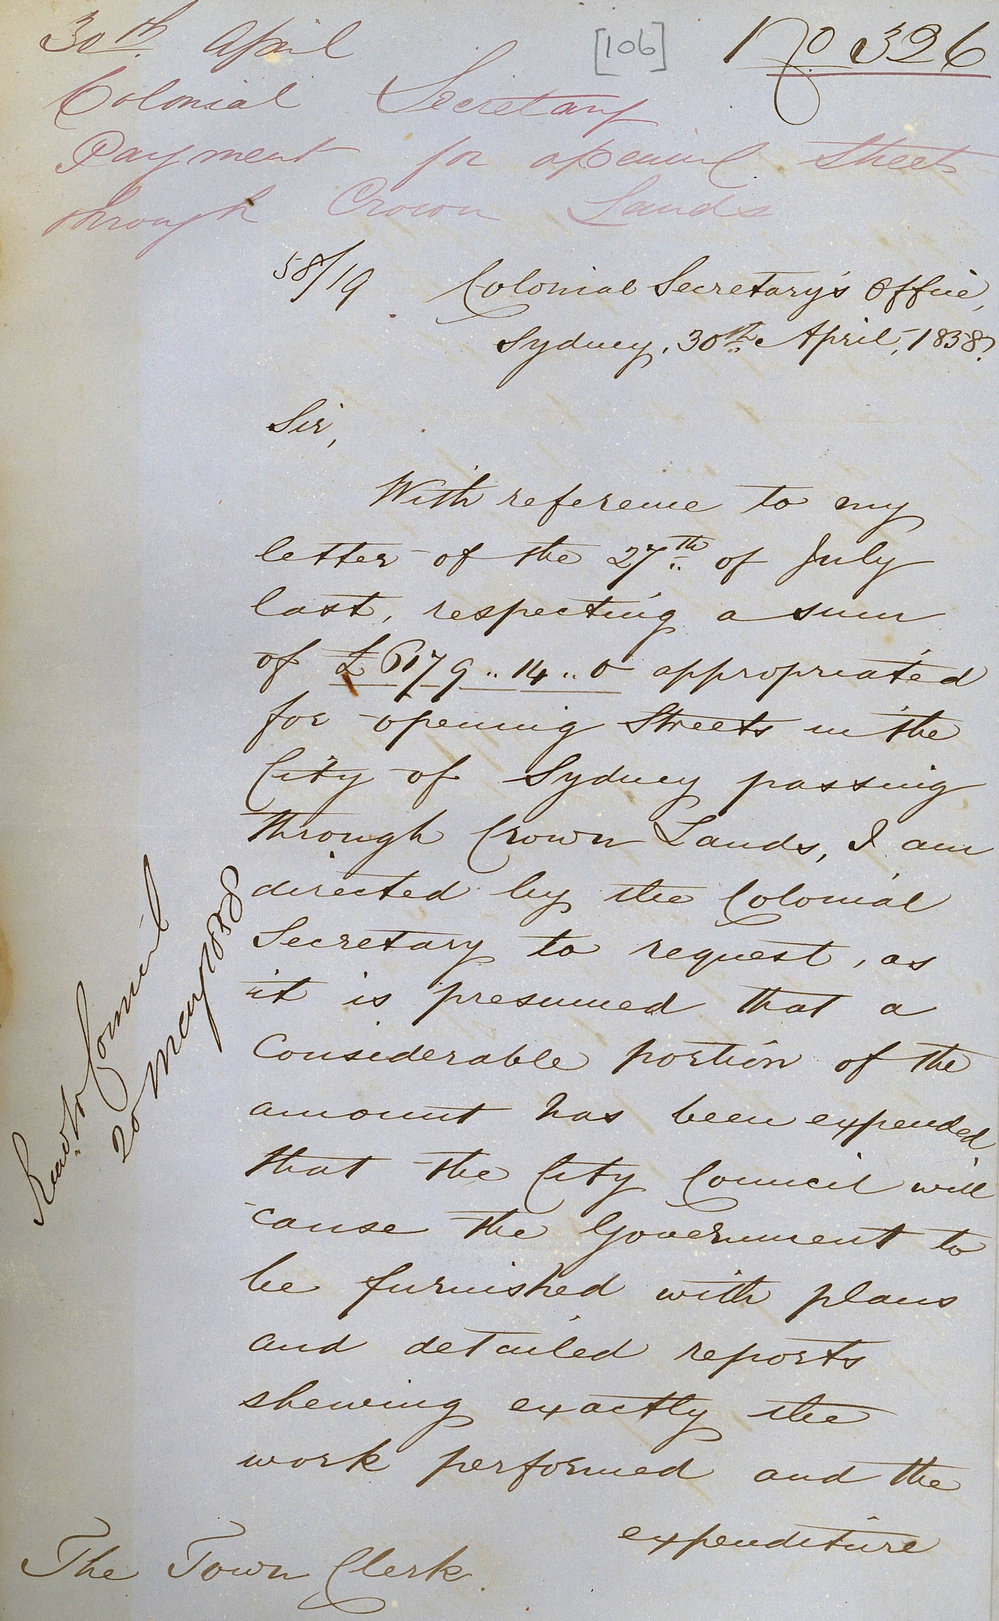 30th April
[106]
No 326
Colonial Secretary
Payment for opening Streets
through Crown Lands
58/19
Colonial Secretary's Office,
Sydney, 30th April, 1858.
Sir,
With reference to my
letter of the 27th of July
last, respecting a sum
of £6179..14..0 appropriated
for opening Streets in the
City of Sydney passing
through Crown Lands, I am
directed by the Colonial
Secretary to request, as
it is presumed that a
Considerable portion of the
amount has been expended
that the City Council will
cause the Government to
be furnished with plans
and detailed reports
shewing exactly the
work performed and the
expenditure
The Town Clerk.
Read to Council
20 May 1858